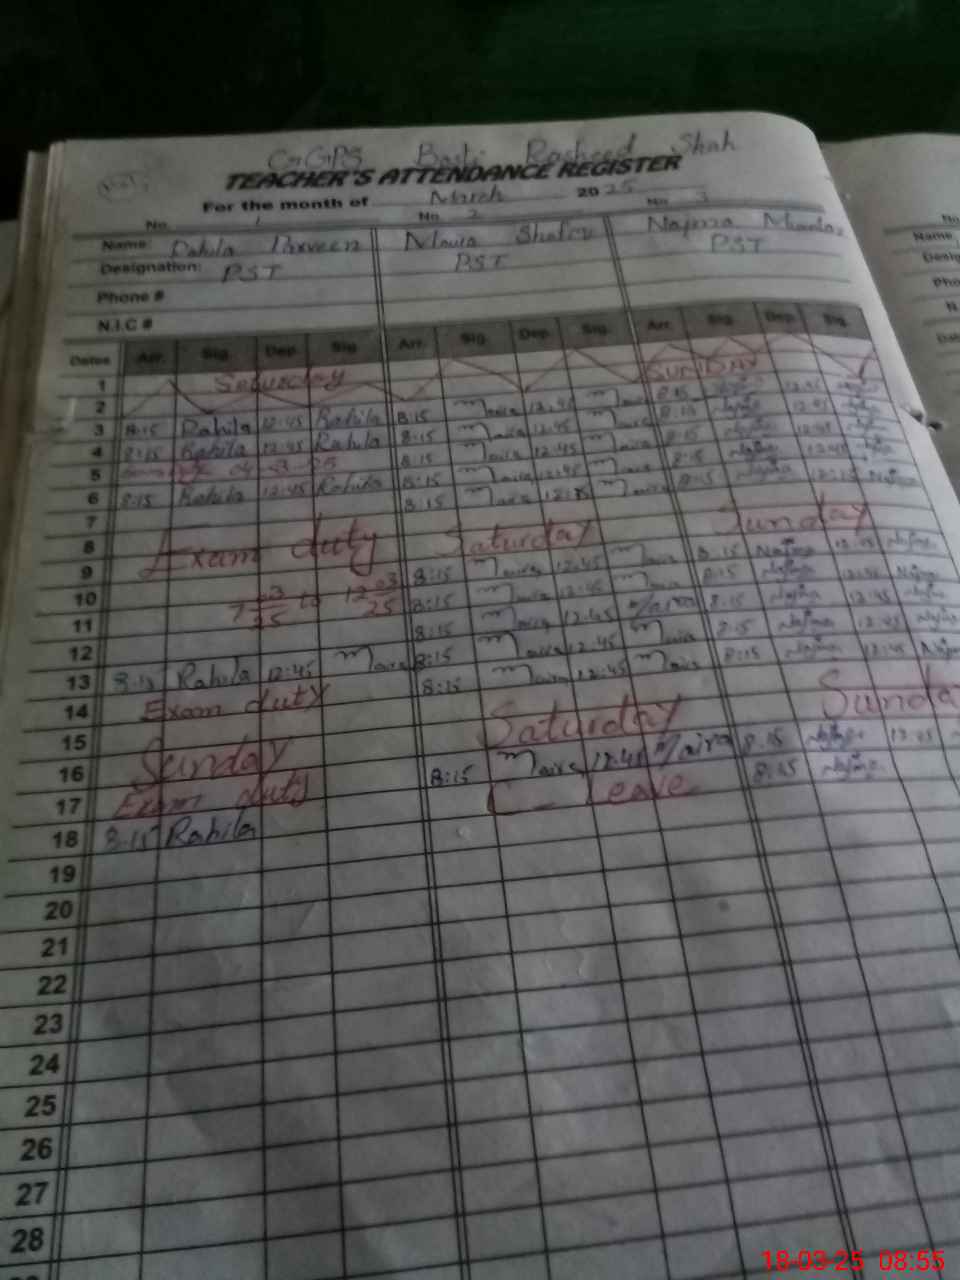 GGPS Basti Rasheed Shah
TEACHER'S ATTENDANCE REGISTER
For the month of March 2025
No. 1 No. 2 No. 3
Name: Rahila Parveen Maira Najma
Designation: PST PST PST
Phone #
N.I.C #
Dates Arr. Sig. Dep. Sig. Arr. Sig. Dep. Sig. Arr. Sig. Dep. Sig.
1 Saturday SUNDAY
2
3 8:15 Rahila 12:45 Rahila 8:15 Maira 12:45 Maira 8:15 12:45
4 8:15 Rahila 12:45 Rahila 8:15 Maira 12:45 Maira 8:15 12:45
5 8:15 Maira 12:45 Maira 8:15 12:45
6 8:15 Rahila 12:45 Rahila 8:15 Maira 12:45 Maira 8:15 12:45
7 8:15 Maira Maira 8:15 12:15
8 Exam duty Saturday Sunday
9
10 7-03-25 to 12-03-25 8:15 Maira 12:45 Maira 8:15 12:45
11 8:15 Maira 12:45 Maira 8:15 12:45
12 8:15 Maira 12:45 Maira 8:15 12:45
13 8:15 Rahila 12:45 Maira 8:15 Maira 12:45 Maira 8:15 12:45
14 Exam duty 8:15 Maira 12:45 Maira 8:15 12:45
15 Saturday Sunday
16 Sunday
17 Exam duty 8:15 Maira 12:45 Maira 8:15 12:45
18 8:15 Rahila C-Leave 8:15
19
20
21
22
23
24
25
26
27
28
18-03-25 08:55